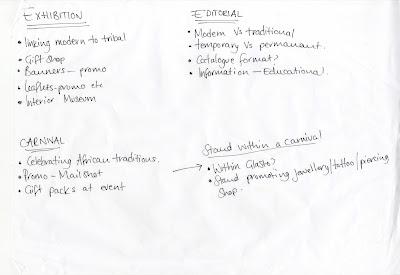 EXHIBITION
• linking modern to tribal
• Gift Shop
• Banners – promo
• Leaflets-promo etc
• Interior Museum
EDITORIAL
• Modern Vs traditional
• temporary Vs permanent.
• Catalogue format?
• Information – Educational.
CARNIVAL
• Celebrating African traditions.
• Promo – Mailshot
• Gift packs at event
Stand within a carnival
→ • Within Glasto?
• Stand promoting jewellery/tattoo/piercing
Shop.